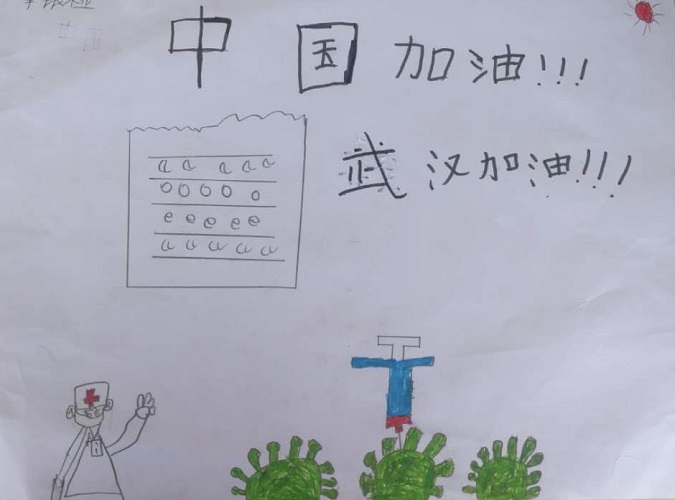 中国加油!!!
武汉加油!!!
a a a a a
o o o o o
e e e e e